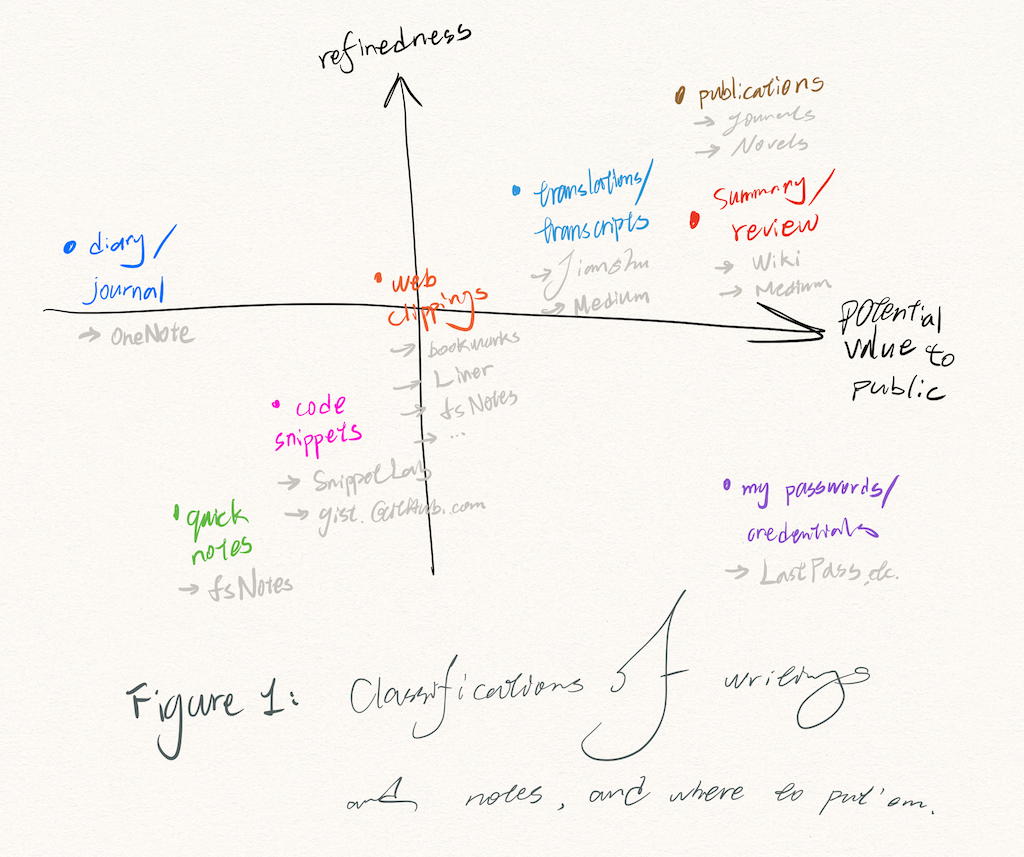 refinedness
• publications
→ Journals
→ Novels
• translations/
transcripts
→ Jianshu
→ Medium
• Summary/
review
→ Wiki
→ Medium
• diary/
journal
→ OneNote
• web
clippings
→ bookmarks
→ Liner
→ fsNotes
→ ...
potential
value to
public
• code
snippets
→ SnippetLab
→ gist.GitHub.com
• quick
notes
→ fsNotes
• my passwords/
credentials
→ LastPass, etc.
Figure 1: Classifications of writings
and notes, and where to put 'em.